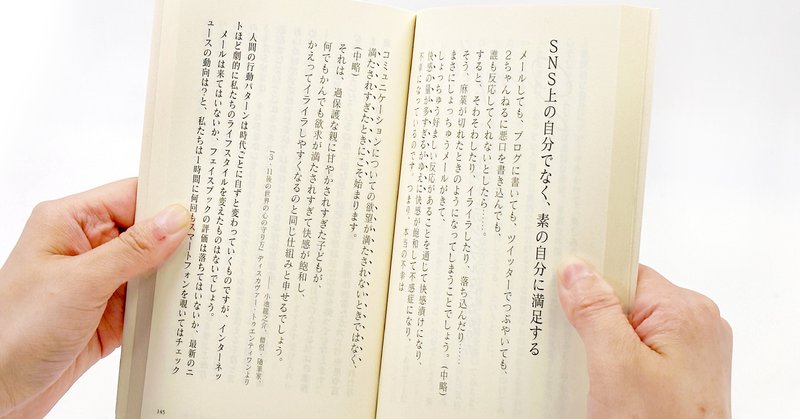 SNS上の自分でなく、素の自分に満足する
メールしても、ブログに書いても、ツイッターでつぶやいても、
2ちゃんねるに悪口を書き込んでも、
誰も反応してくれないとしたら……。
すると、そわそわしたり、イライラしたり、落ち込んだり……
そう、麻薬が切れたときのようになってしまうことでしょう。(中略)
まさにしょっちゅうメールがきて、
しょっちゅう好ましい反応があることを通じて快感漬けになり、
快感の量が多すぎるがゆえに快感が飽和して不感症になり、
不幸になっているのです。つまり、本当の不幸は
コミュニケーションについての欲望が満たされないときではなく、
満たされすぎたときにこそ始まります。
(中略)
それは、過保護な親に甘やかされすぎた子どもが、
何でもかんでも欲求が満たされすぎて快感が飽和し、
かえってイライラしやすくなるのと同じ仕組みと申せるでしょう。
——小池龍之介、僧侶・随筆家、
『3・11後の世界の心の守り方』ディスカヴァー・トゥエンティワンより
人間の行動パターンは時代ごとに自ずと変わっていくものですが、インターネッ
トほど劇的に私たちのライフスタイルを変えたものはないでしょう。
メールは来てはいないか、フェイスブックの評価は落ちてはいないか、最新のニ
ュースの動向は?と、私たちは1時間に何回もスマートフォンを覗いてはチェック
145